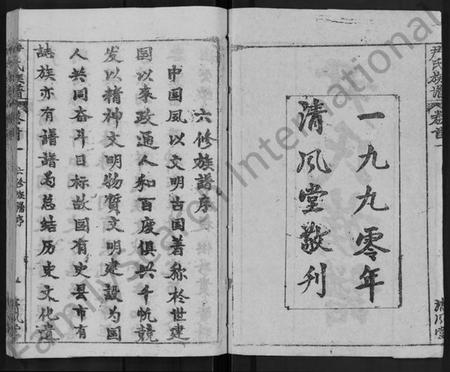 尹氏族譜 卷首一
一九九零年
清風堂敬刊
清風堂
六修族譜序
中国夙以文明古国著称於世建
国以来政通人和百废俱兴千帆競
发以精神文明物質文明建設为国
人共同奋斗目标故国有史县市有
誌族亦有譜譜为总结历史文化遺
氏族譜 卷首一
六修族譜序
FamilySearch International